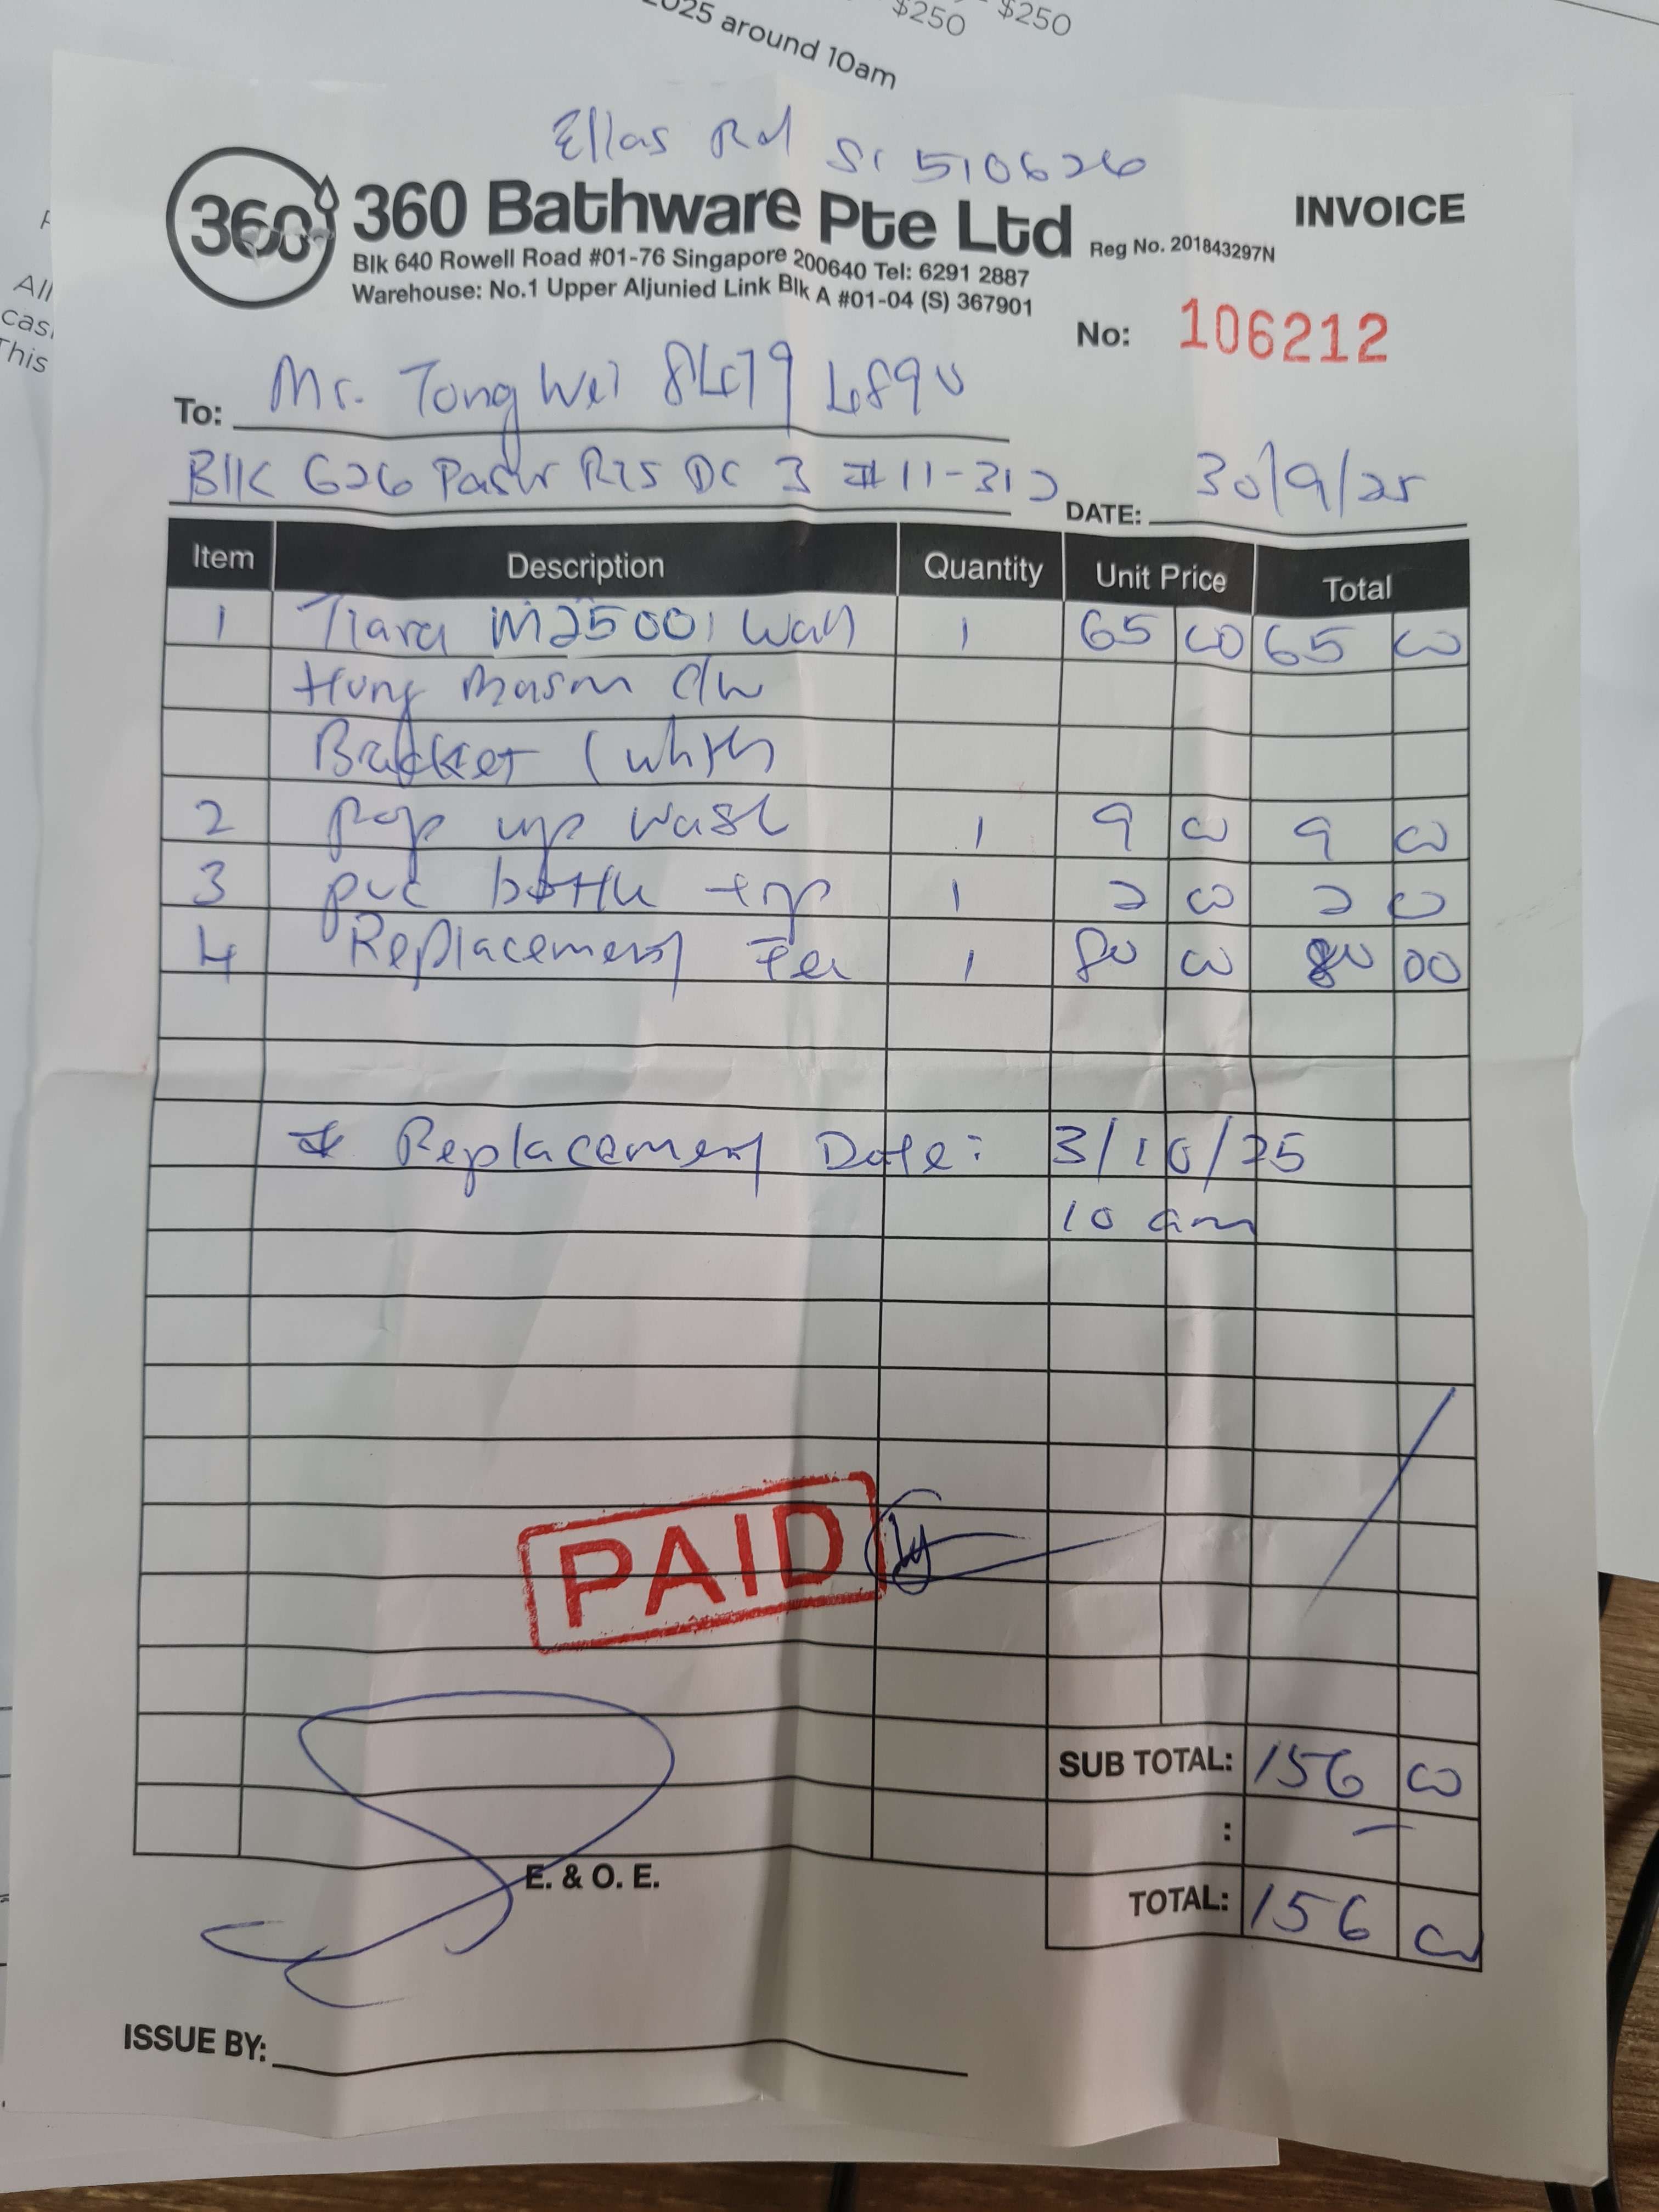 $250 $250
2025 around 10am
All
cas
This
Ellas Rd S( 510626
360
360 Bathware Pte Ltd
INVOICE
Reg No. 201843297N
Blk 640 Rowell Road #01-76 Singapore 200640 Tel: 6291 2887
Warehouse: No.1 Upper Aljunied Link Blk A #01-04 (S) 367901
No: 106212
To: Mr. Tong Wei 8479 4890
Blk 626 Pasir Ris Dr 3 #11-312
DATE: 30/9/25
Item Description Quantity Unit Price Total
1 Tiara M25001 Wall 1 65 00 65 00
Hung Basin c/w
Bracket (white)
2 Pop up wast 1 9 00 9 00
3 pvc bottle trap 1 2 00 2 00
4 Replacement Fee 1 80 00 80 00
* Replacement Date: 3/10/25
10 am
PAID
SUB TOTAL: 156 00
: -
E. & O. E.
TOTAL: 156 00
ISSUE BY: